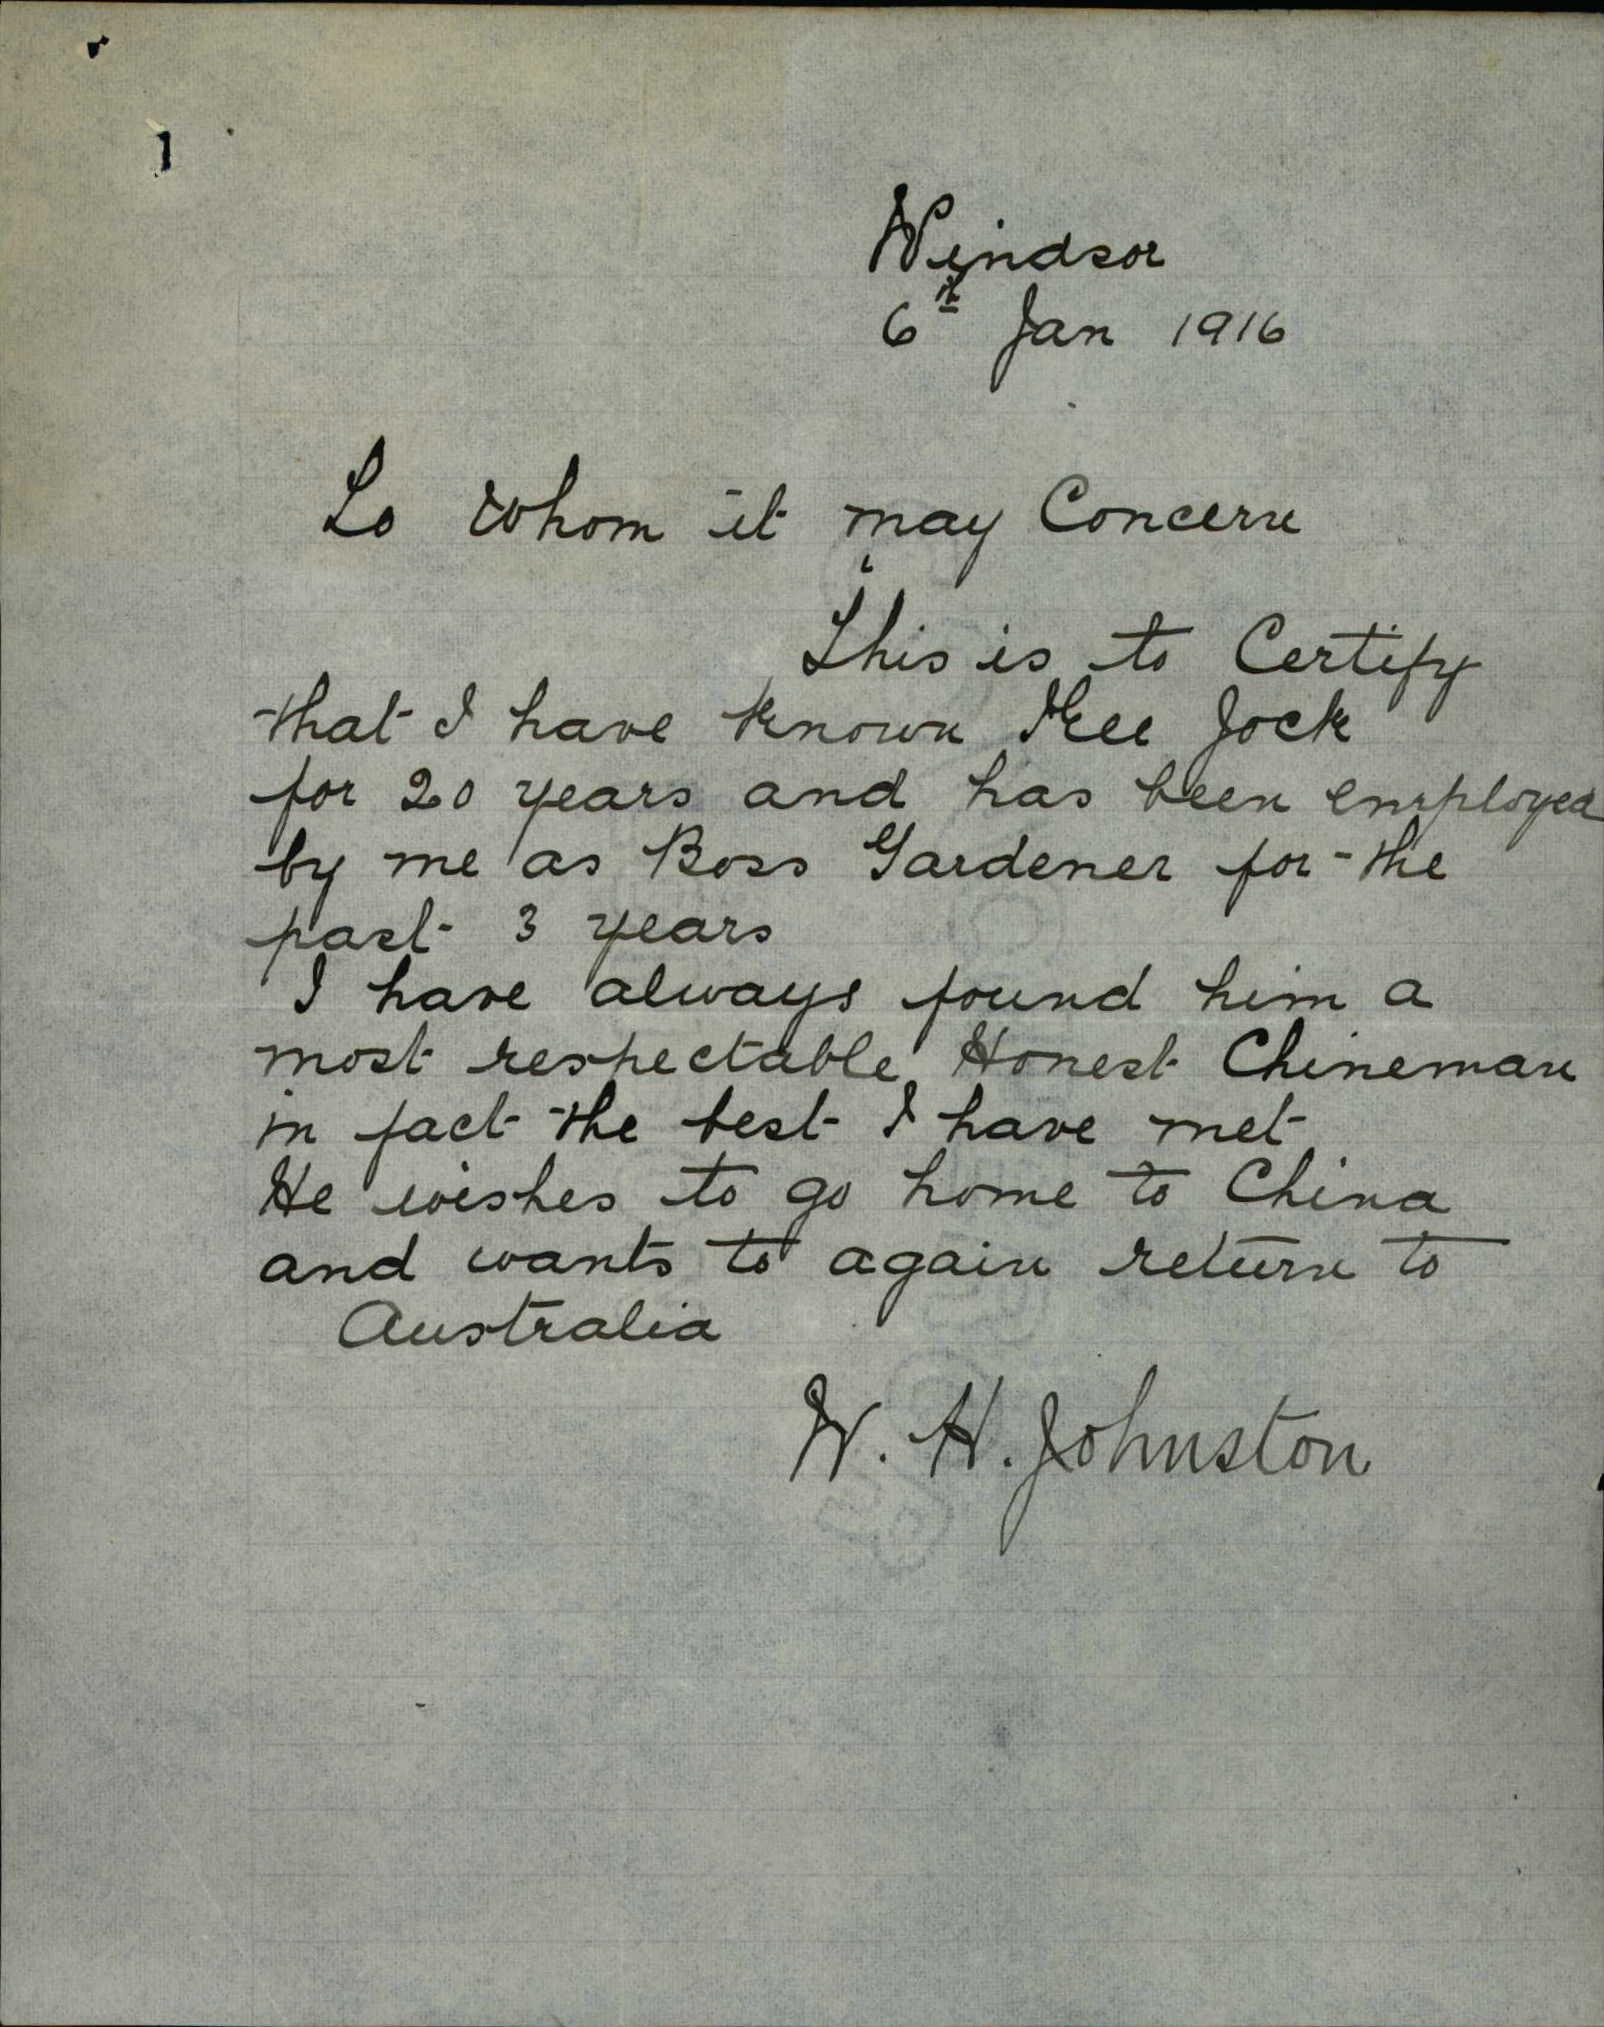 Windsor
6th Jan 1916
To Whom it may Concern
This is to Certify
that I have known Kee Jock
for 20 years and has been employed
by me as Boss Gardener for the
past 3 years
I have always found him a
most respectable Honest Chineman
in fact the best I have met
He wishes to go home to China
and wants to again return to
Australia
W. H. Johnston